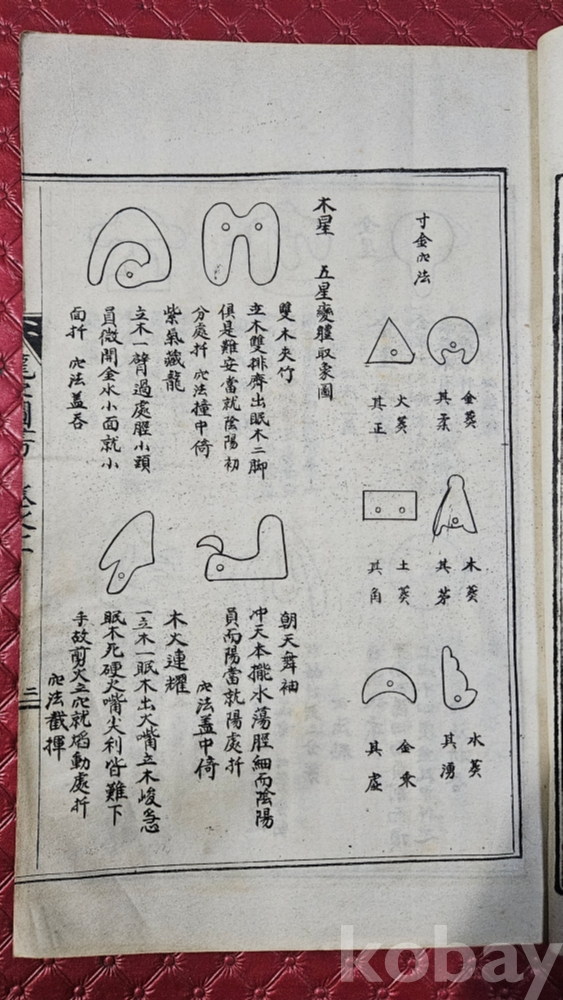 寸金穴法
金葵
其柔
火葵
其正
木葵
其茅
土葵
其角
水葵
其湧
金乘
其虛
木星 五星變體取象圖
雙木夾竹
立木雙排齊出眠木二脚
俱是難安當就陰陽初
分處扦 穴法撞中倚
紫氣藏龍
立木一臂過處脛小頭
員微開金水小面就小
面扦 穴法蓋吞
朝天舞袖
冲天本擺水蕩脛細而陰陽
員而陽當就陽處扦
穴法蓋中倚
木火連耀
一立木一眠木出火嘴立木峻急
眠木死硬火嘴尖利皆難下
手故剪火立穴就焰動處扦
穴法截揮
二
kobay